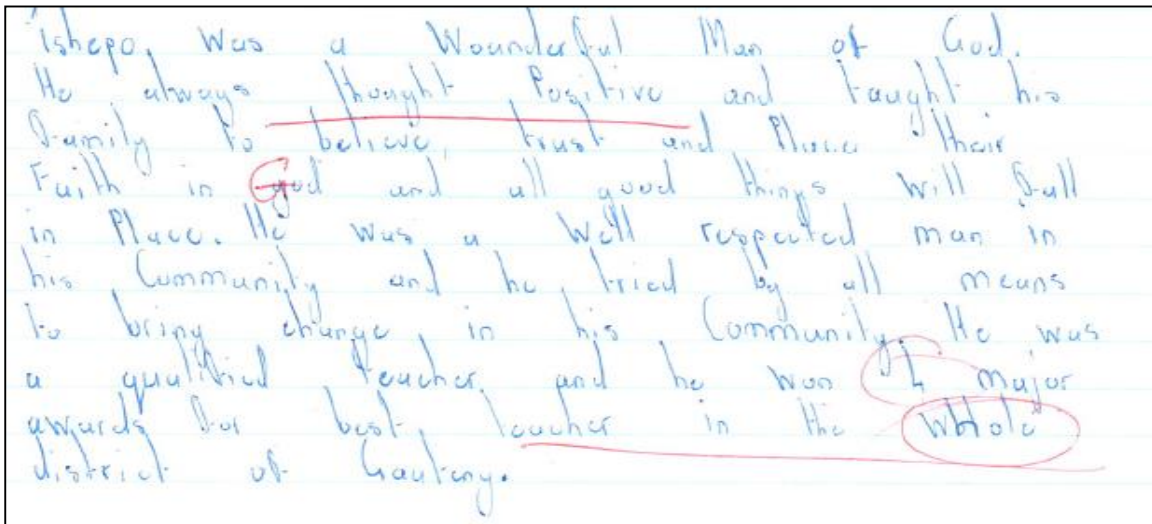 Tshepo, Was a Wounderful Man of God.
He always thought Positive and taught his
Family to believe, trust and Place their
Faith in god and all good things will fall
in Place. He was a Well respected man in
his Community and he tried by all means
to bring change in his Community. He was
a qualified teacher, and he won 2 major
awards for best teacher in the whole
district of Gauteng.